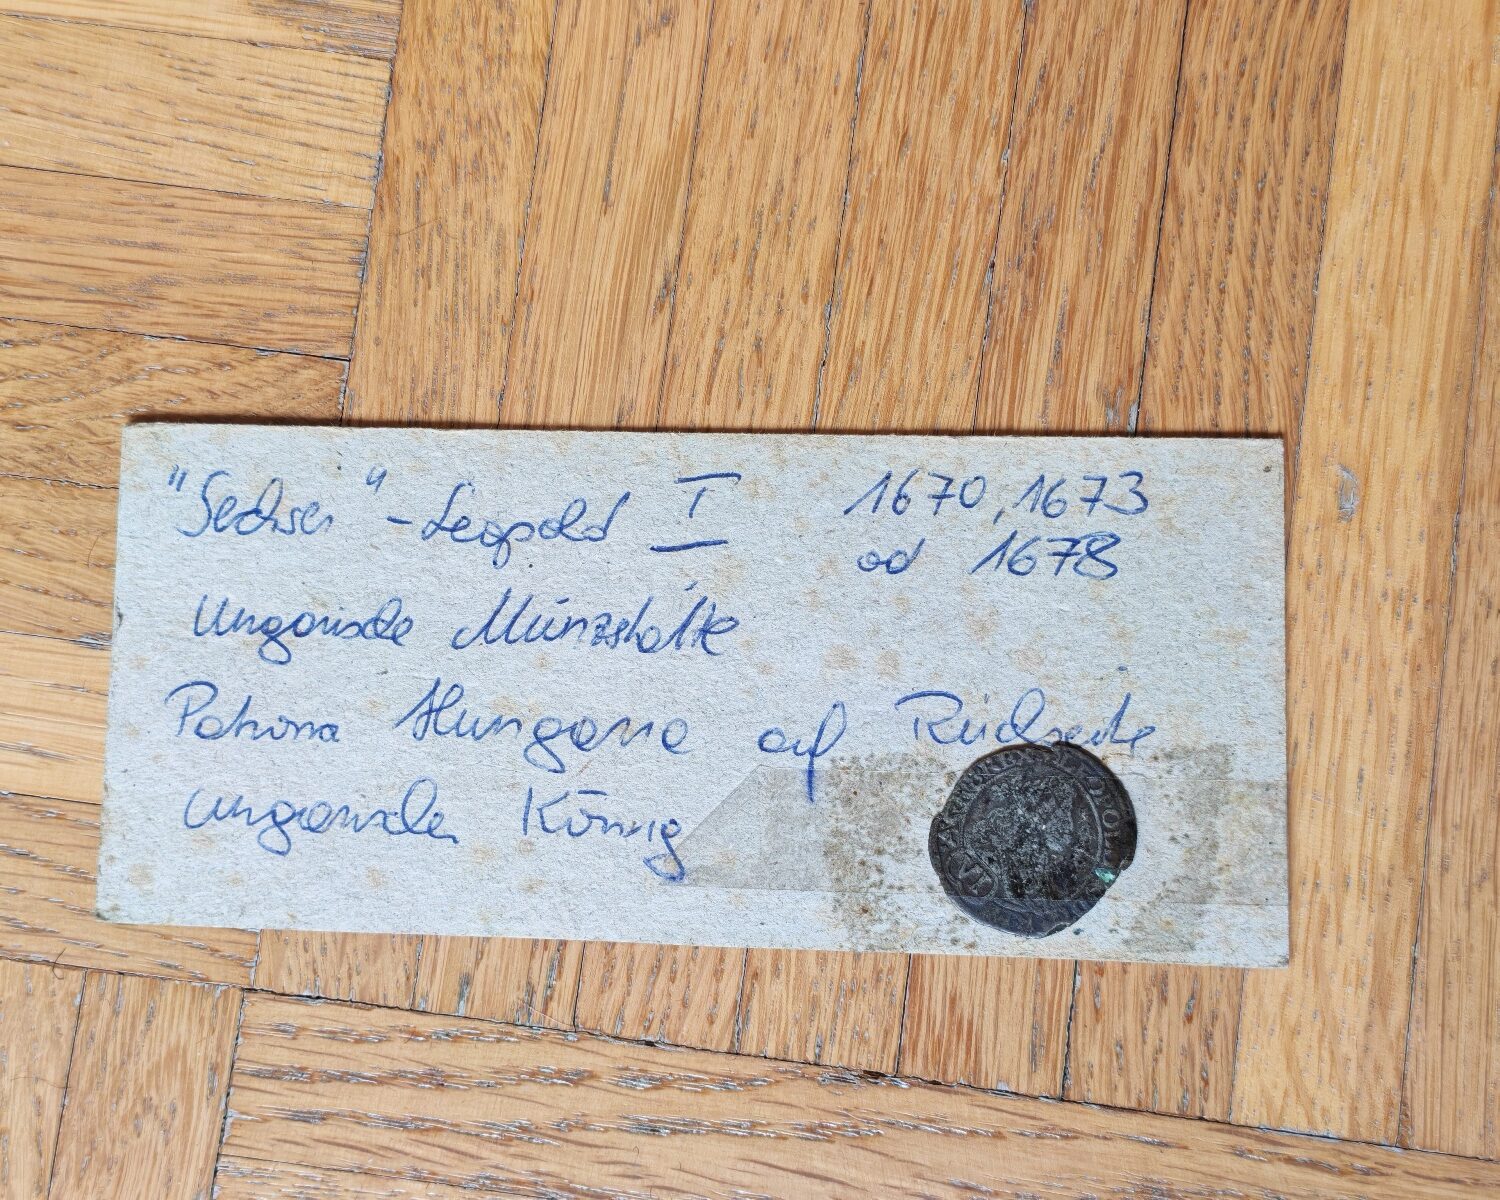 "Sechser" - Leopold I 1670, 1673
od 1678
Ungarische Münzstätte
Patrona Hungarie auf Rückseite
ungarischer König